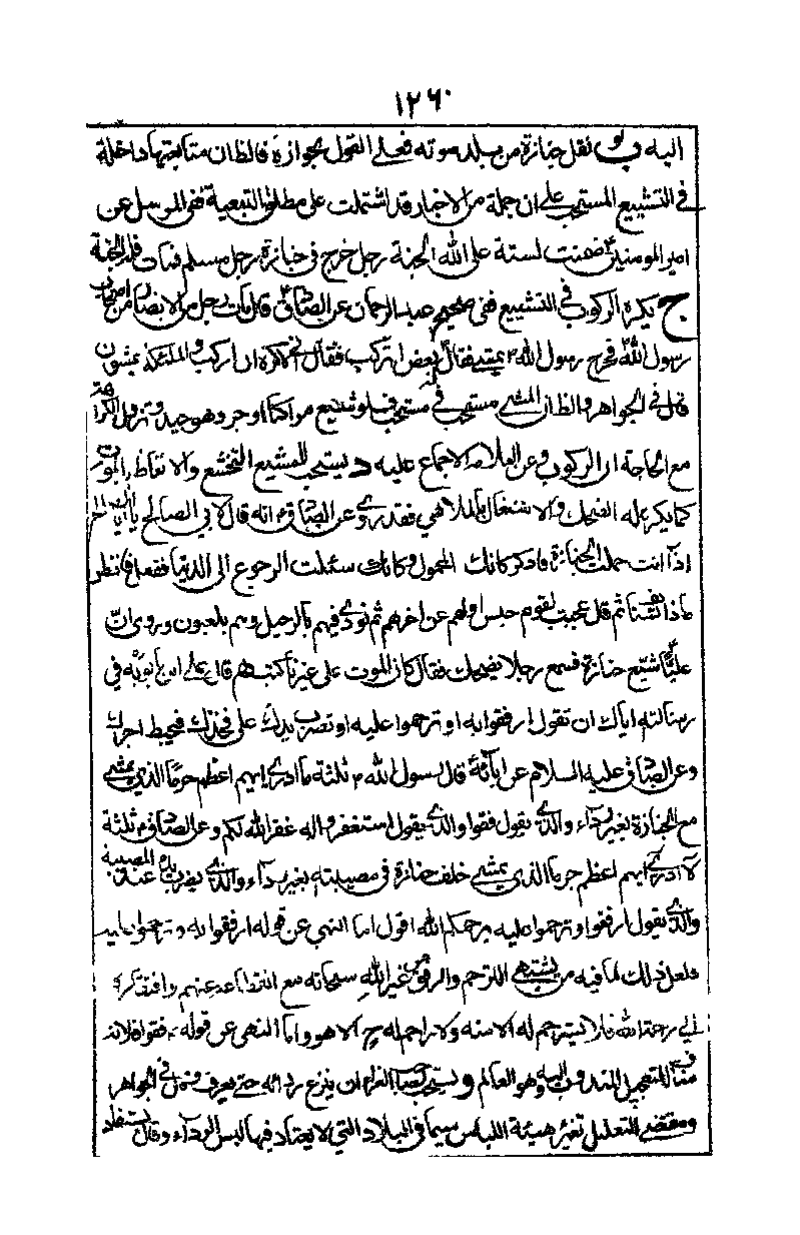 ١٢٦٠
اليه ب لو نقل جنازة من بلد موته فعلى القول بجوازه فالظان متابعتها داخلة
في التشييع المستحب على ان جملة من الاخبار قد اشتملت على مطلق التبعية ففي المرسل عن
امير المومنين ضمنت لستة على الله الجنة رجل خرج في جنازة رجل مسلم فمات فله الجنة
ج يكره الركوب في التشييع ففي صحيح عبد الرحمان عن الصادق قال مات رجل من الانصار من اصحاب
رسول الله فخرج رسول الله يمشي فقال بعض الا تركب فقال اني لاكره ان اركب والملئكة يمشون
قال في الجواهر والظان المشي مستحب في مستحب فلو شيع مراكبا اوجر وهو جيد وتزول الكراهة
مع الحاجة الى الركوب وعن العلامه الاجماع عليه د يستحب للمشيع التخشع والاتعاظ بالموت
كما يكره له الضحك والاشتغال بالملاهي فقد روى عن الصادق انه قال لابي الصالح يا ابا الصالح
اذا انت حملت الجنازة فاذكر كانك المحمول وكانك سئلت الرجوع الى الدنيا ففعل فانظر
ماذا تستانف ثم قال عجبت لقوم حبس اولهم عن اخرهم ثم نودى فيهم بالرحيل وهم يلعبون وروى ان
عليا شيع جنازة فسمع رجلا يضحك فقال كان الموت على غيرنا كتب هم قال علي ابن بابويه في
رسالته اياك ان تقول ارفقوا به او ترحموا عليه او تضرب يدك على فخذك فيحبط اجرك
وعن الصادق عليه السلام عن ابائه قال رسول الله ثلثة ما ادرى ايهم اعظم جرما الذي يمشي
مع الجنازة بغير رداء والذي يقول قفوا والذي يقول استغفروا له غفر الله لكم وعن الصادق ثلثة
لا ادرى ايهم اعظم جرما الذي يمشي خلف جنازة في مصيبته بغير رداء والذي يضرب يده عند المصيبة
والذي يقول ارفقوا وترحموا عليه يرحمكم الله اقول اما النهي عن قوله ارفقوا به وترحموا عليه
ولعل ذلك لما فيه من الترحم والرفق غير الله سبحانه مع انقطاعه عنهم وافتقاره
الى رحمة الله فلا يسترحم له الا منه ولا راحم له ح الا هو واما النهي عن قوله قفوا فلانه
مناف للتعجيل المندوب اليه وهو العالم و يستحب لصاحب العزاء ان ينزع ردائه حتى يعرف وفي الجواهر
ومقتضى التعليل تغير هيئة اللباس سيما في البلاد التي لا يعتاد فيها لبس الرداء وقال يستفاد